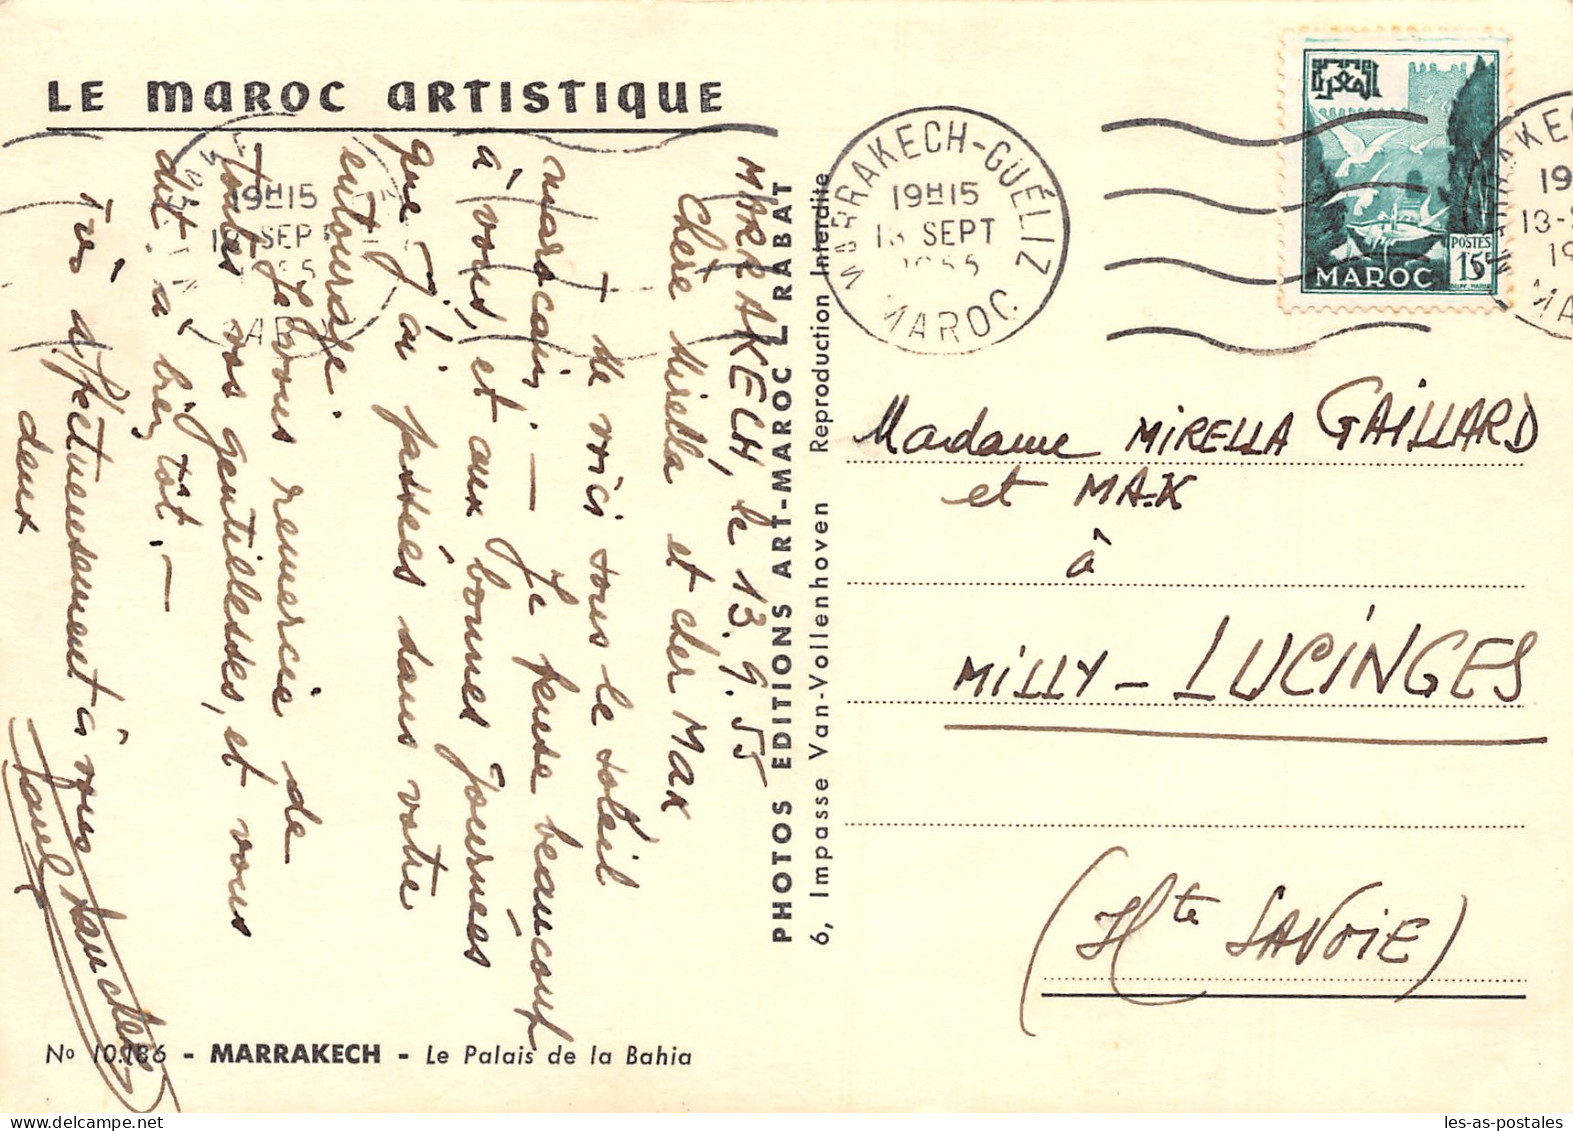 LE MAROC ARTISTIQUE
MARRAKECH, le 13.9.55
Chère Mirella et cher Max
Me voici sous le soleil
marocain. — Je pense beaucoup
à vous, et aux bonnes journées
que j'ai passées dans votre
entourage.
Je vous remercie de
toutes vos gentillesses, et vous
dit, à bientôt. —
Très affectueusement à vous
deux
No 10.186 - MARRAKECH - Le Palais de la Bahia
PHOTOS EDITIONS ART-MAROC - RABAT
6, Impasse Van-Vollenhoven Reproduction Interdite
MARRAKECH-GUÉLIZ
19H15
13 SEPT
1955
MAROC
POSTES
15F
MAROC
19H15
SEP
19
13-S
19
Madame MIRELLA GAILLARD
et MAX
à
MILLY - LUCINGES
(Hte SAVOIE)
les-as-postales